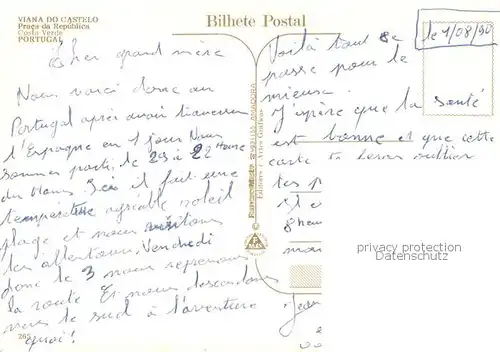 VIANA DO CASTELO
Praça da República
Costa Verde
PORTUGAL
Bilhete Postal
le 1/08/90
Cher grand mère
Nous voici donc au
Portugal après avoir traversé
l'Espagne en 1 jour Nous
sommes parti le 29 à 22 Heure
du Mans. Ici il fait une
température agréable soleil
plage et nous visitons
les alentours. Vendredi
donc le 3 nous reprenons
la route Et nous descendons
vers le sud à l'aventure
quoi!
265
Voilà tout se
passe pour le
mieux.
J'espère que la santé
est bonne et que cette
carte te
les
privacy protection
Datenschutz
Jean